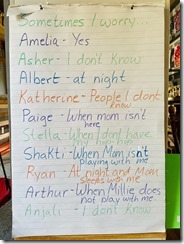 Sometimes I worry...
Amelia - Yes
Asher - I don't know
Albert - at night
Katherine - People I dont
know
Paige - When mom isn't
here
Stella - When I dont have
my
Shakti - When Mom isn't
playing with me
Ryan - At night and Mom
sleeps with me
Arthur - When Millie does
not play with me.
Anjali - I don't know